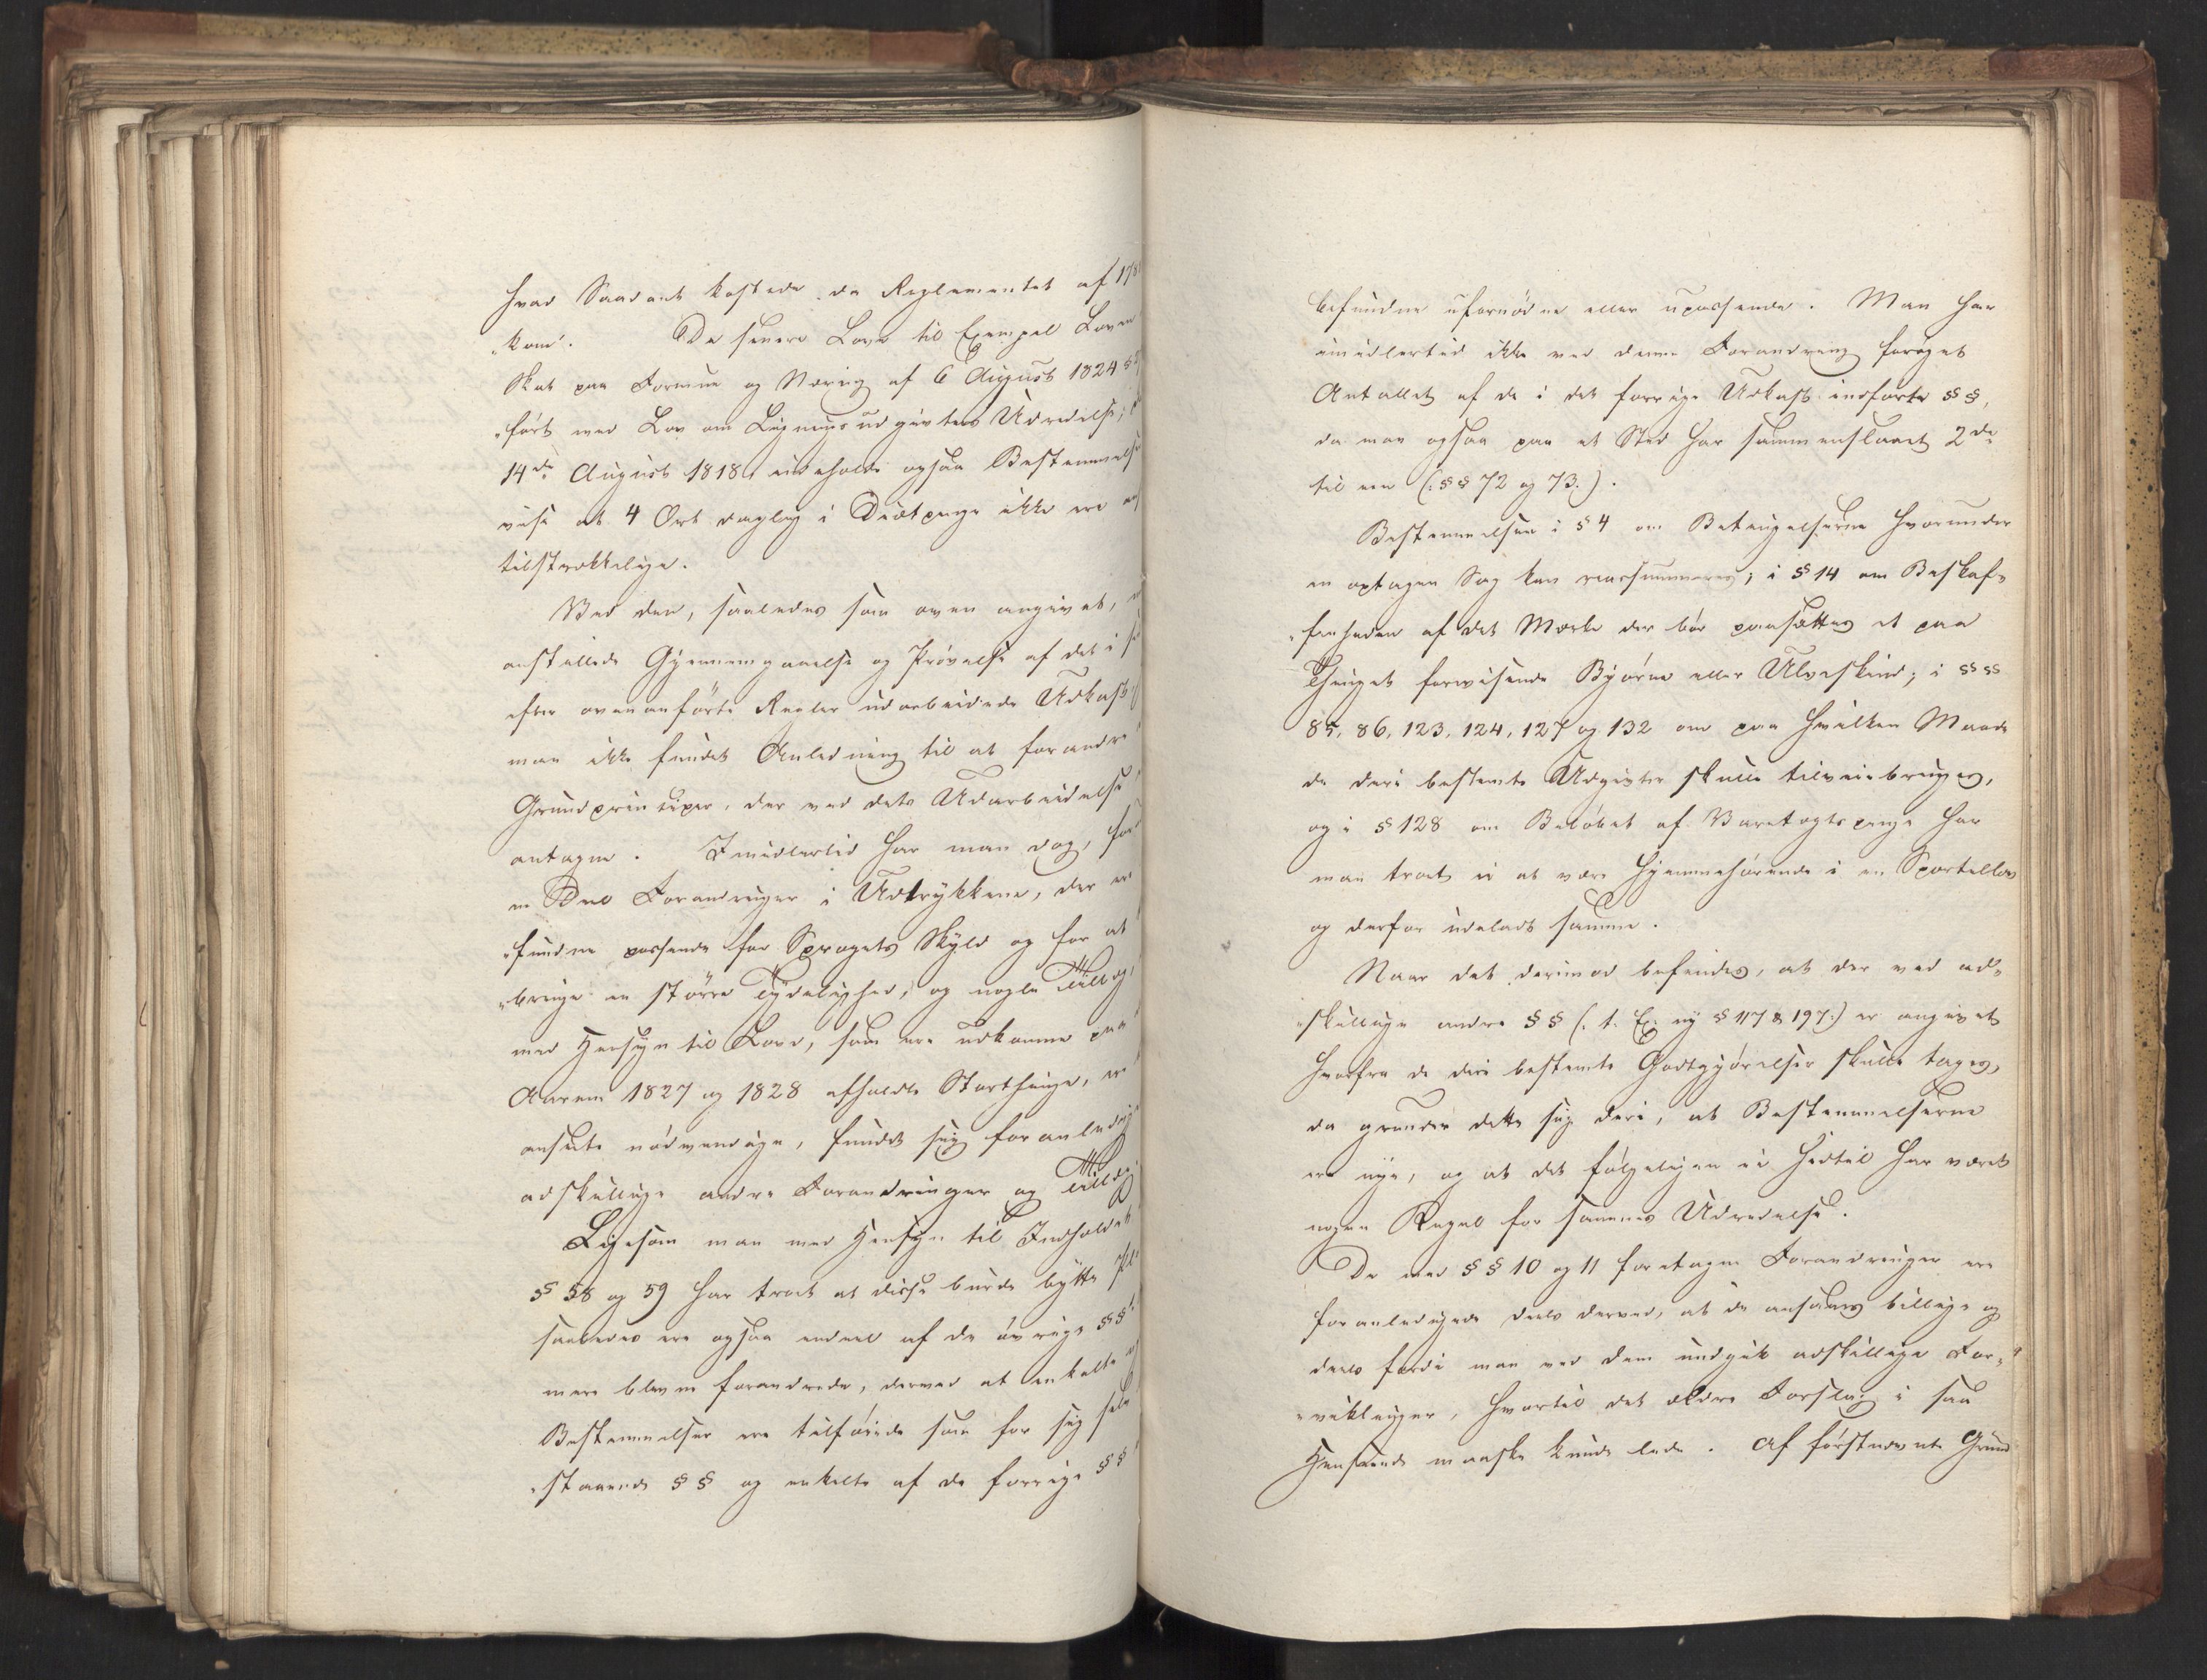 hvad Saadant kostede da Reglementet af 178
„kom. De senere Love til Exempel Loven
Skat paa Formue og Næring af 6 August 1824 §
„ført med Lov om Ligningsudgivters Udredelse,
14de August 1818, indeholde ogsaa Bestemmelse
vise at 4 Ort daglig i Diætpenge ikke ere
tilstrækkelige.
Ved den, saaledes som oven angivet,
anstillede Gjennemgaaelse og Prøvelse af det i
efter ovenanførte Regler udarbeidede Udkast
man ikke fundet Anledning til at forandre
Grundprinciper, der ved dets Udarbeidelse
antagne. Imidlertid har man dog, for
en Deel Forandringer i Udtrykkene, der ere
„fundne passende for Sprogets Skyld og for at
„bringe en större Tydelighed, og nogle Tillæg,
med Hensyn til Love, som ere udkomne paa
Aarene 1827 og 1828 afholdte Storthinge, ere
ansete nødvendige, fundet sig foranledig
adskillige andre Forandringer og Tillæg
Ligesom man med Hensyn til Indholdet
§ 58 og 59 har troet at disse burde bytte Pl
saaledes ere ogsaa endeel af de øvrige §§
mere blevne forandrede, derved at enkelte
Bestemmelser ere tilføiede som for sig selv
„staaende §§ og enkelte af de forrige §§
befundne ufornødne eller upassende. Man har
imidlertid ikke ved denne Forandring forøget
Antallet af de i det forrige Udkast indførte §§,
da man ogsaa paa et Sted har sammenslaaet 2de
til een (: §§ 72 og 73 :).
Bestemmelsen i § 4 om Betingelserne hvorunder
en optagen Sag kan reassumeres; i § 14 om Beskaf„
„fenheden af det Mærke der bør paasættes et paa
Thinget forevisende Bjørne eller Ulveskind; i §§
85, 86, 123, 124, 127 og 132 om paa hvilken Maade
de deri bestemte Udgivter skulle tilveiebringes,
og i § 128 om Beløbet af Varetægtspenge har
man troet ei at være hjemmehørende i en Sportellov
og derfor udeladt samme.
Naar det derimod befindes, at der ved ad„
„skillige andre §§ (: t. Ex. ny § 117 & 197 :) er angivet
hvorfra de deri bestemte Godtgjørelser skulle tages,
da grunder dette sig deri, at Bestemmelserne
ere nye, og at det følgeligen ei hidtil har været
nogen Regel for sammes Udredelse.
De ved §§ 10 og 11 foretagne Forandringer ere
foranledigede deels derved, at de ansaaes billige og
deels fordi man ved dem undgik adskillige For„
„viklinger, hvortil det ældre Forslag i saa
Henseende maaske kunde lede. Af førstnævnte Grund